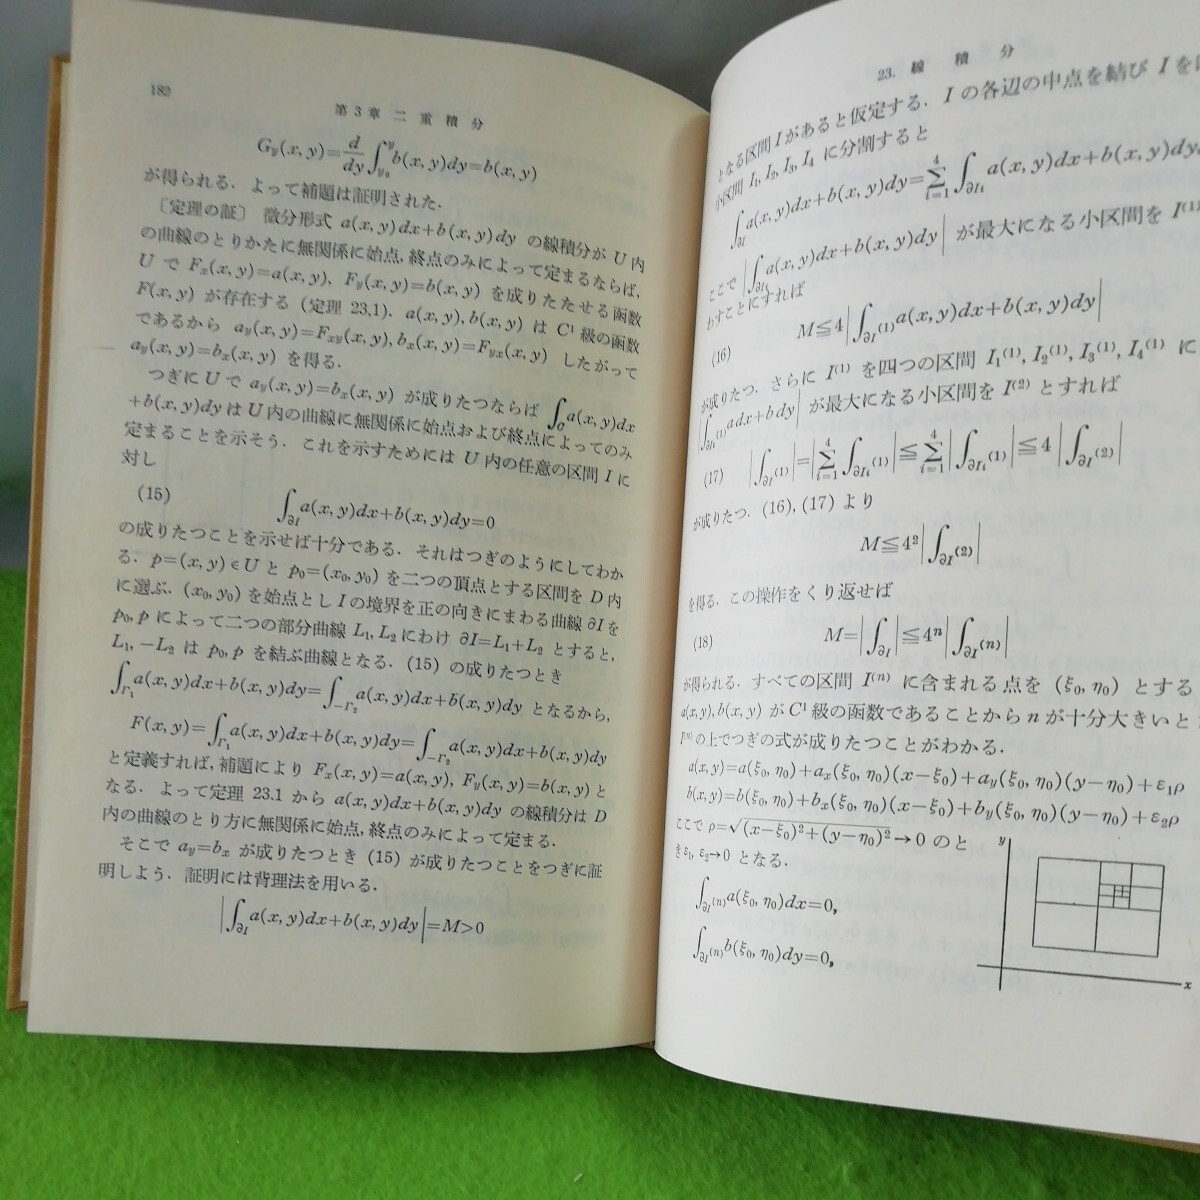 182
第3章 二重積分
G_y(x, y)=\frac{d}{dy}\int_{y_0}^{y}b(x, y)dy=b(x, y)
が得られる．よって補題は証明された．
〔定理の証〕 微分形式 a(x, y)dx+b(x, y)dy の線積分が U 内
の曲線のとりかたに無関係に始点, 終点のみによって定まるならば,
U で F_x(x, y)=a(x, y), F_y(x, y)=b(x, y) を成りたたせる函数
F(x, y) が存在する (定理 23.1)．a(x, y), b(x, y) は C¹ 級の函数
であるから a_y(x, y)=F_{xy}(x, y), b_x(x, y)=F_{yx}(x, y) したがって
a_y(x, y)=b_x(x, y) を得る．
つぎに U で a_y(x, y)=b_x(x, y) が成りたつならば \int_C a(x, y)dx
+b(x, y)dy は U 内の曲線に無関係に始点および終点によってのみ
定まることを示そう．これを示すためには U 内の任意の区間 I に
対し
(15) \int_{∂I}a(x, y)dx+b(x, y)dy=0
の成りたつことを示せば十分である．それはつぎのようにしてわか
る．p=(x, y)∈U と p₀=(x₀, y₀) を二つの頂点とする区間を D 内
に選ぶ．(x₀, y₀) を始点とし I の境界を正の向きにまわる曲線 ∂I を
p₀, p によって二つの部分曲線 L₁, L₂ にわけ ∂I=L₁+L₂ とすると,
L₁, −L₂ は p₀, p を結ぶ曲線となる．(15) の成りたつとき
\int_{Γ_1}a(x, y)dx+b(x, y)dy=\int_{-Γ_2}a(x, y)dx+b(x, y)dy となるから,
F(x, y)=\int_{Γ_1}a(x, y)dx+b(x, y)dy=\int_{-Γ_2}a(x, y)dx+b(x, y)dy
と定義すれば, 補題により F_x(x, y)=a(x, y), F_y(x, y)=b(x, y) と
なる．よって定理 23.1 から a(x, y)dx+b(x, y)dy の線積分は D
内の曲線のとり方に無関係に始点, 終点のみによって定まる．
そこで a_y=b_x が成りたつとき (15) が成りたつことをつぎに証
明しよう．証明には背理法を用いる．
|\int_{∂I}a(x, y)dx+b(x, y)dy|=M>0
23. 線積分
となる区間 I があると仮定する．I の各辺の中点を結び I を
小区間 I₁, I₂, I₃, I₄ に分割すると
\int_{∂I}a(x, y)dx+b(x, y)dy=\sum_{i=1}^{4}\int_{∂I_i}a(x, y)dx+b(x, y)dy
ここで |\int_{∂I_i}a(x, y)dx+b(x, y)dy| が最大になる小区間を I^{(1)}
わすことにすれば
(16) M≦4|\int_{∂I^{(1)}}a(x, y)dx+b(x, y)dy|
が成りたつ．さらに I^{(1)} を四つの区間 I₁^{(1)}, I₂^{(1)}, I₃^{(1)}, I₄^{(1)} に
|\int_{∂I_i^{(1)}}a dx+b dy| が最大になる小区間を I^{(2)} とすれば
(17) |\int_{∂I^{(1)}}|=|\sum_{i=1}^{4}\int_{∂I_i^{(1)}}|≦\sum_{i=1}^{4}|\int_{∂I_i^{(1)}}|≦4|\int_{∂I^{(2)}}|
が成りたつ．(16), (17) より
M≦4²|\int_{∂I^{(2)}}|
を得る．この操作をくり返せば
(18) M=|\int_{∂I}|≦4ⁿ|\int_{∂I^{(n)}}|
が得られる．すべての区間 I^{(n)} に含まれる点を (ξ₀, η₀) とする
a(x, y), b(x, y) が C¹ 級の函数であることから n が十分大きいと
I^{(n)} の上でつぎの式が成りたつことがわかる．
a(x, y)=a(ξ₀, η₀)+a_x(ξ₀, η₀)(x−ξ₀)+a_y(ξ₀, η₀)(y−η₀)+ε₁ρ
b(x, y)=b(ξ₀, η₀)+b_x(ξ₀, η₀)(x−ξ₀)+b_y(ξ₀, η₀)(y−η₀)+ε₂ρ
ここで ρ=√((x−ξ₀)²+(y−η₀)²)→0 のと
き ε₁, ε₂→0 となる．
\int_{∂I^{(n)}}a(ξ₀, η₀)dx=0,
\int_{∂I^{(n)}}b(ξ₀, η₀)dy=0,
y
x